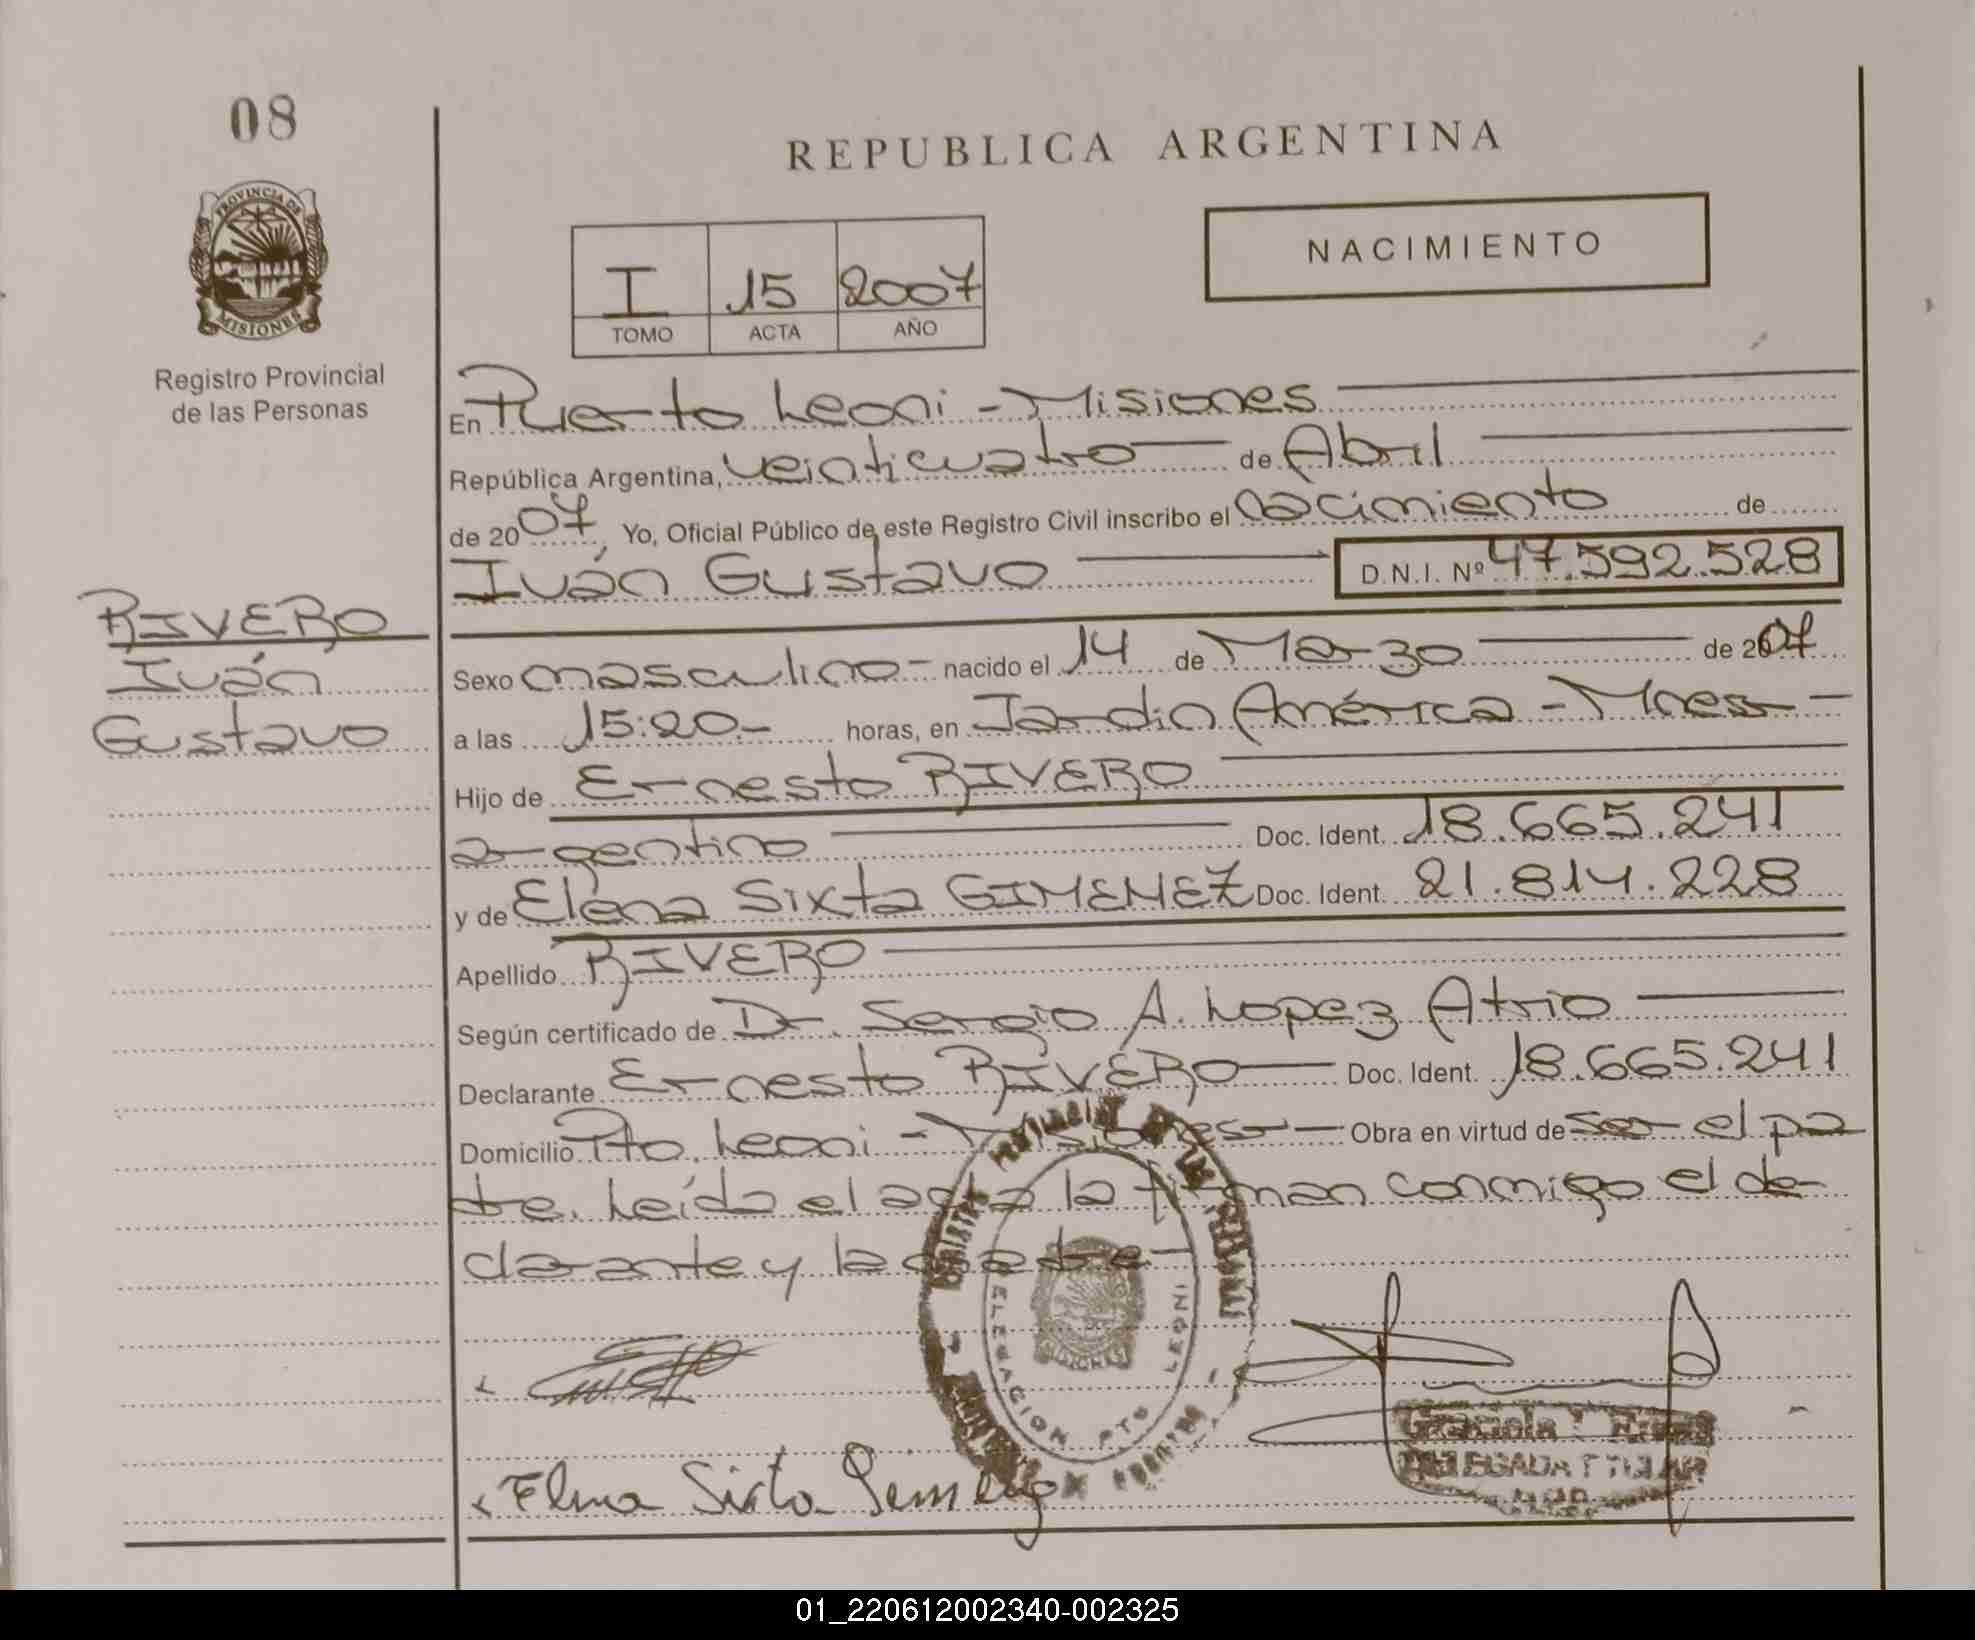 08
REPUBLICA ARGENTINA
PROVINCIA DE
MISIONES
Registro Provincial
de las Personas
NACIMIENTO
I 15 2007
TOMO ACTA AÑO
En Puerto Leoni - Misiones
República Argentina, veinticuatro de Abril
de 2007, Yo, Oficial Público de este Registro Civil inscribo el nacimiento de
Iván Gustavo D.N.I. Nº 47.592.528
RIVERO
Iván
Gustavo
Sexo masculino - nacido el 14 de Marzo de 2007
a las 15:20.- horas, en Jardin América - Mnes -
Hijo de Ernesto RIVERO
argentino Doc. Ident. 18.665.241
y de Elena Sixta GIMENEZ Doc. Ident. 21.814.228
Apellido RIVERO
Según certificado de Dr. Sergio A. Lopez Atrio
Declarante Ernesto RIVERO Doc. Ident. 18.665.241
Domicilio Pto. Leoni - Misiones - Obra en virtud de ser el pa
dre. Leída el acta la firman conmigo el de-
clarante y la madre -
DELEGACION PTO LEONI
MISIONES
Sixta
DELEGADA TITULAR
01_220612002340-002325